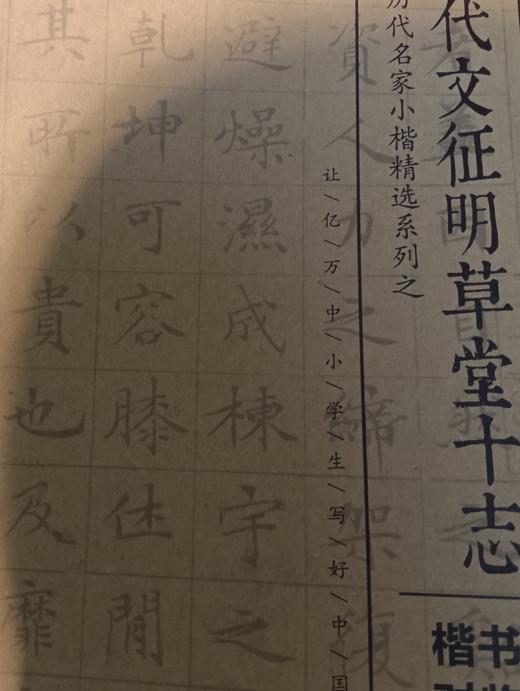 代文征明草堂十志
历代名家小楷精选系列之
让/亿/万/中/小/学/生/写/好/中/国
楷书
資人力之締架復
避燥濕成棟宇之
乹坤可容膝休閒
其所以貴也及靡